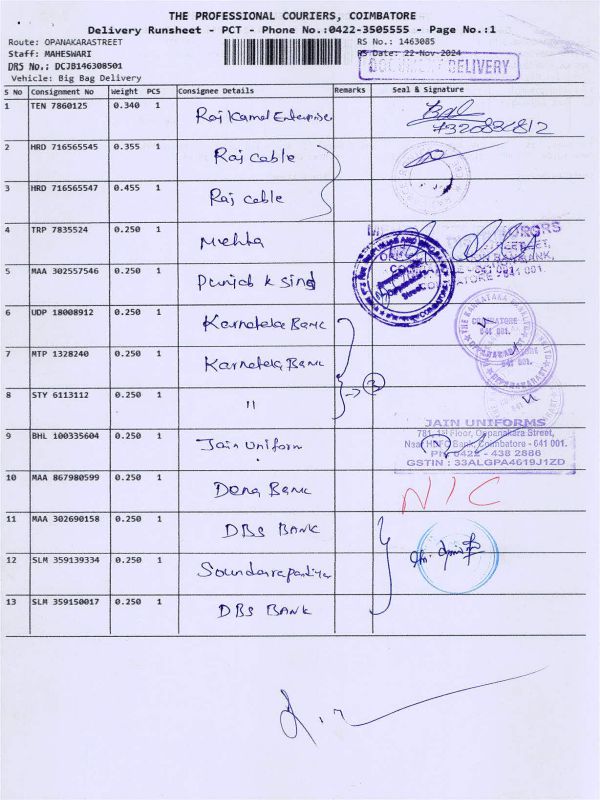 THE PROFESSIONAL COURIERS, COIMBATORE
Delivery Runsheet - PCT - Phone No.:0422-3505555 - Page No.:1
Route: OPANAKARASTREET
RS No.: 1463085
Staff: MAHESWARI
RS Date: 22-Nov-2024
DRS No.: DCJB146308501
DOCUMENT DELIVERY
Vehicle: Big Bag Delivery
S No Consignment No Weight PCS Consignee Details Remarks Seal & Signature
1 TEN 7860125 0.340 1 Raj Kamal Enterprise
7320836812
2 HRD 716565545 0.355 1 Raj cable
3 HRD 716565547 0.455 1 Raj cable
4 TRP 7835524 0.250 1 Mehta
5 MAA 302557546 0.250 1 Punjab k Sind
COIMBATORE - 641 001.
6 UDP 18008912 0.250 1 Karnataka Bank
THE KARNATAKA
COIMBATORE
641 001.
7 MTP 1328240 0.250 1 Karnataka Bank
8 STY 6113112 0.250 1 " → 3
9 BHL 100335604 0.250 1 Jain Uniform
JAIN UNIFORMS
781, 1st Floor, Oppanakara Street,
Near HDFC Bank, Coimbatore - 641 001.
PH: 0422 - 438 2886
GSTIN : 33ALGPA4619J1ZD
10 MAA 867980599 0.250 1 Dena Bank NIC
11 MAA 302690158 0.250 1 DBS BANK
12 SLM 359139334 0.250 1 Soundarapandiyan
13 SLM 359150017 0.250 1 DBS BANK